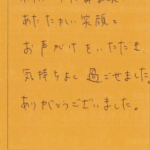 あたたかい笑顔と
お声がけをいただき
気持ちよく過ごせました。
ありがとうございました。